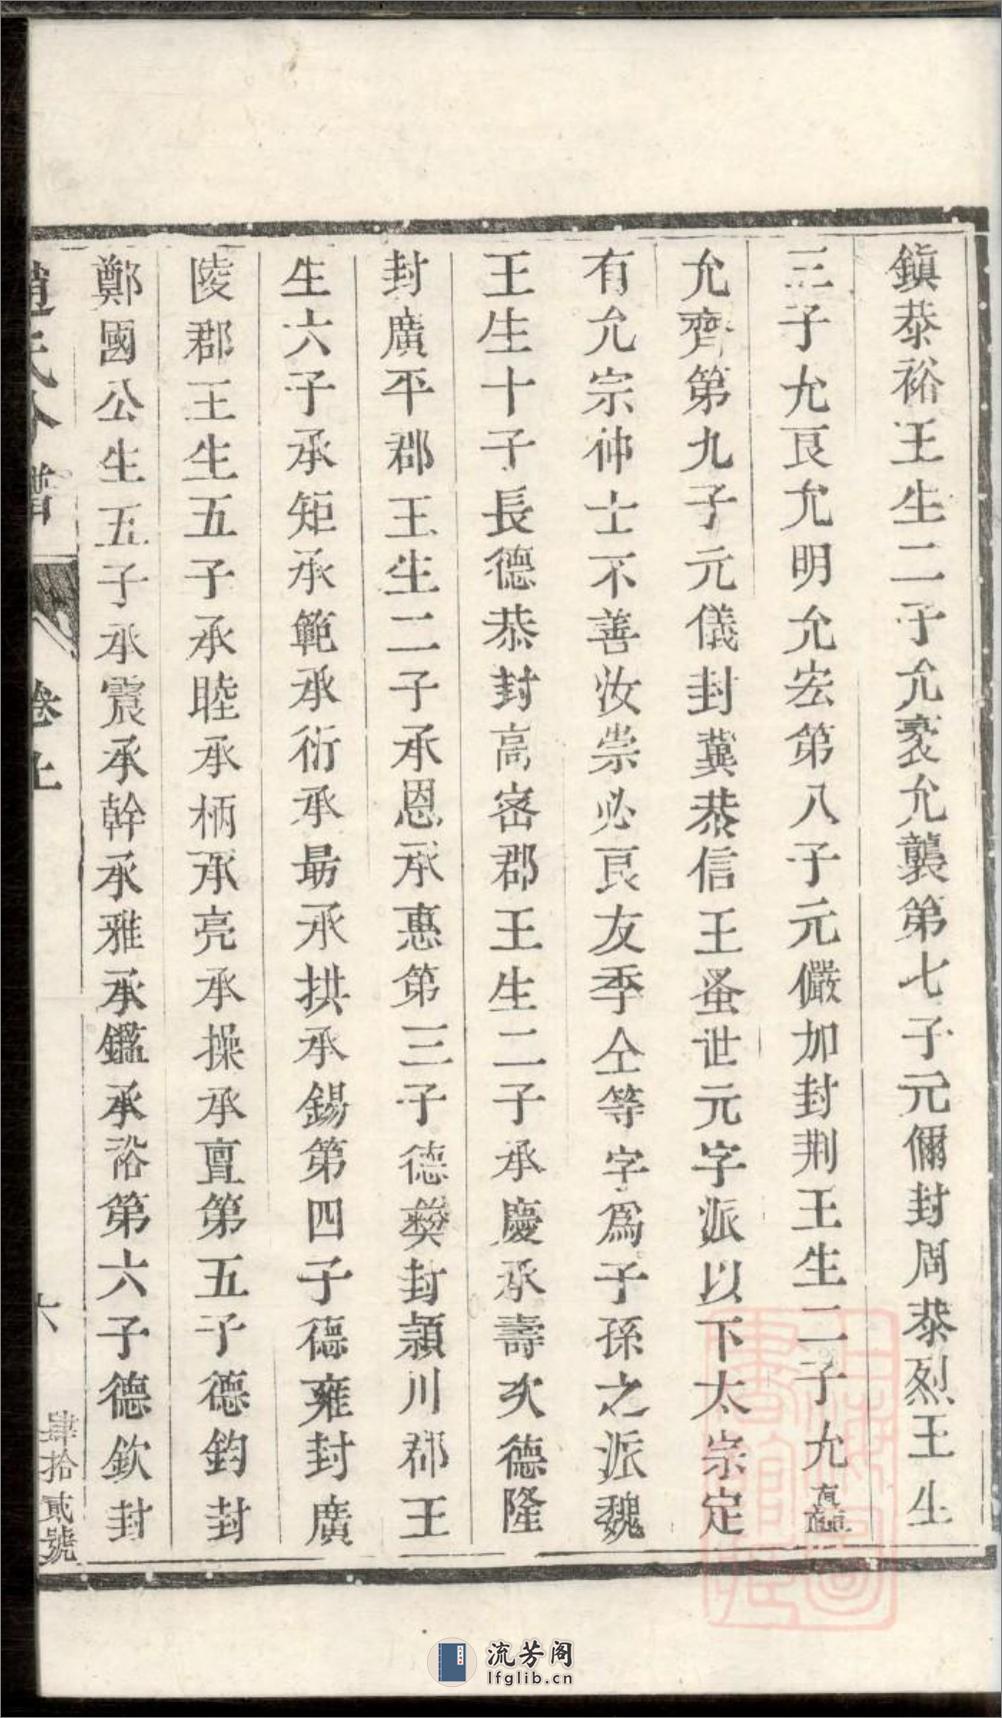 鎮恭裕王生二子允袤允襲第七子元儞封周恭烈王生
三子允艮允明允宏第八子元儼加封荆王生二子允
允齊第九子元儀封冀恭信王蚤世元字派以下太宗定
有允宗仲士不善汝崇必艮友季仝等字爲子孫之派魏
王生十子長德恭封高密郡王生二子承慶承壽次德隆
封廣平郡王生二子承恩承惠第三子德彝封潁川郡王
生六子承矩承範承衍承勗承拱承錫第四子德雍封廣
陵郡王生五子承睦承柄承亮承操承亶第五子德鈞封
鄭國公生五子承震承幹承雅承鑑承裕第六子德欽封
趙氏分譜
卷上
六
肆拾貳號
流芳阁
lfglib.cn